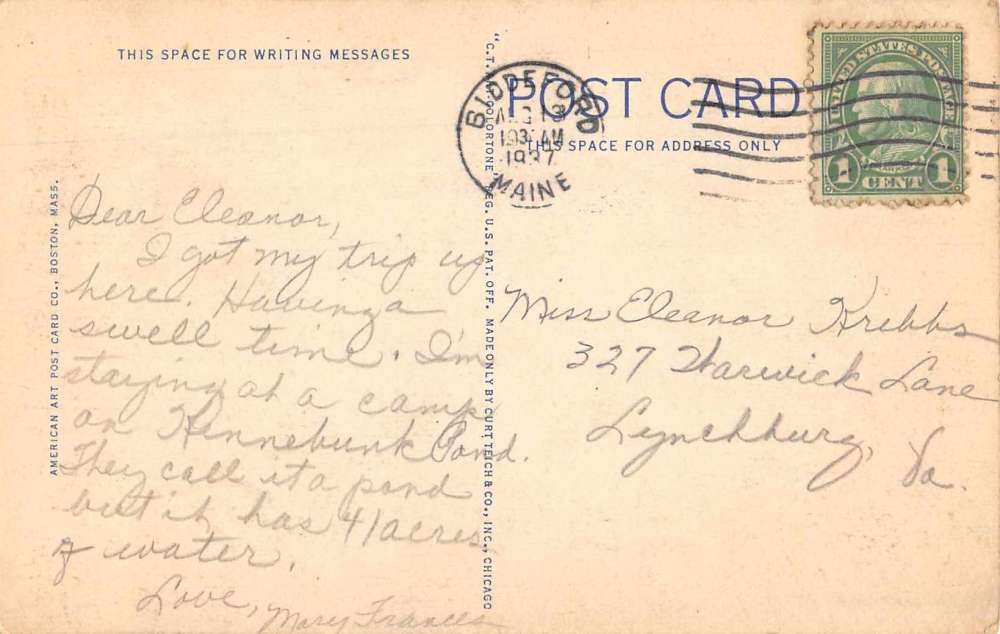 THIS SPACE FOR WRITING MESSAGES
POST CARD
THIS SPACE FOR ADDRESS ONLY
BIDDEFORD
AUG 13
1937
MAINE
UNITED STATES POSTAGE
1 CENT 1
AMERICAN ART POST CARD CO., BOSTON, MASS.
"C.T. COLORTONE" REG. U.S. PAT. OFF. MADE ONLY BY CURT TEICH & CO., INC., CHICAGO
Dear Eleanor,
I got my trip up
here. Having a
swell time. I'm
staying at a camp
on Kennebunk Pond.
They call it a pond
but it has 41 acres
of water.
Love, Mary Frances
Miss Eleanor Kribbs
327 Warwick Lane
Lynchburg,
Va.